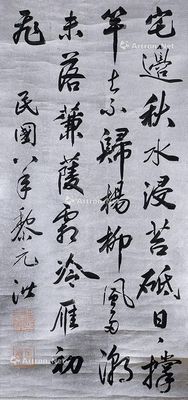 宅邊秋水浸苔砥日〻撐
竿去不歸楊柳風多潮
未落蒹葭霜冷雁初
飛
民國八年黎元洪
Artron.Net